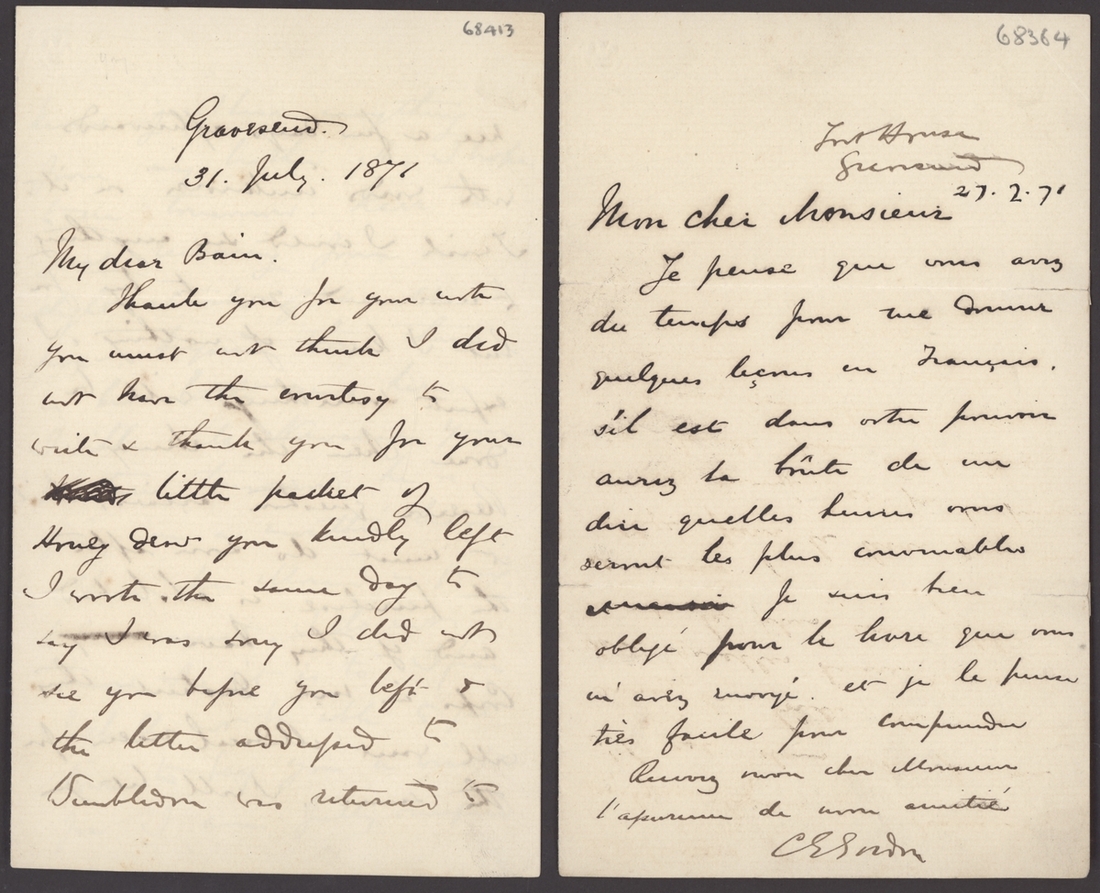 68413
Gravesend.
31. July. 1871
My dear Bain.
Thank you for your note
you must not think I did
not have the courtesy to
write & thank you for your
little packet of
Honey dew you kindly left
I wrote the same day to
say I was sorry I did not
see you before you left &
the letter addressed to
Wimbledon was returned to
68364
Fort House
Gravesend
27. 2. 71
Mon cher Monsieur
Je pense que vous avez
du temps pour me donner
quelques leçons en Français.
s'il est dans votre pouvoir
aurez la bonte de me
dire quelles heures vous
seront les plus convenables
Je suis bien
obligé pour le livre que vous
m'avez envoyé. et je le pense
très facile pour comprendre
Recevez mon cher Monsieur
l'assurance de mon amitié
C E Gordon